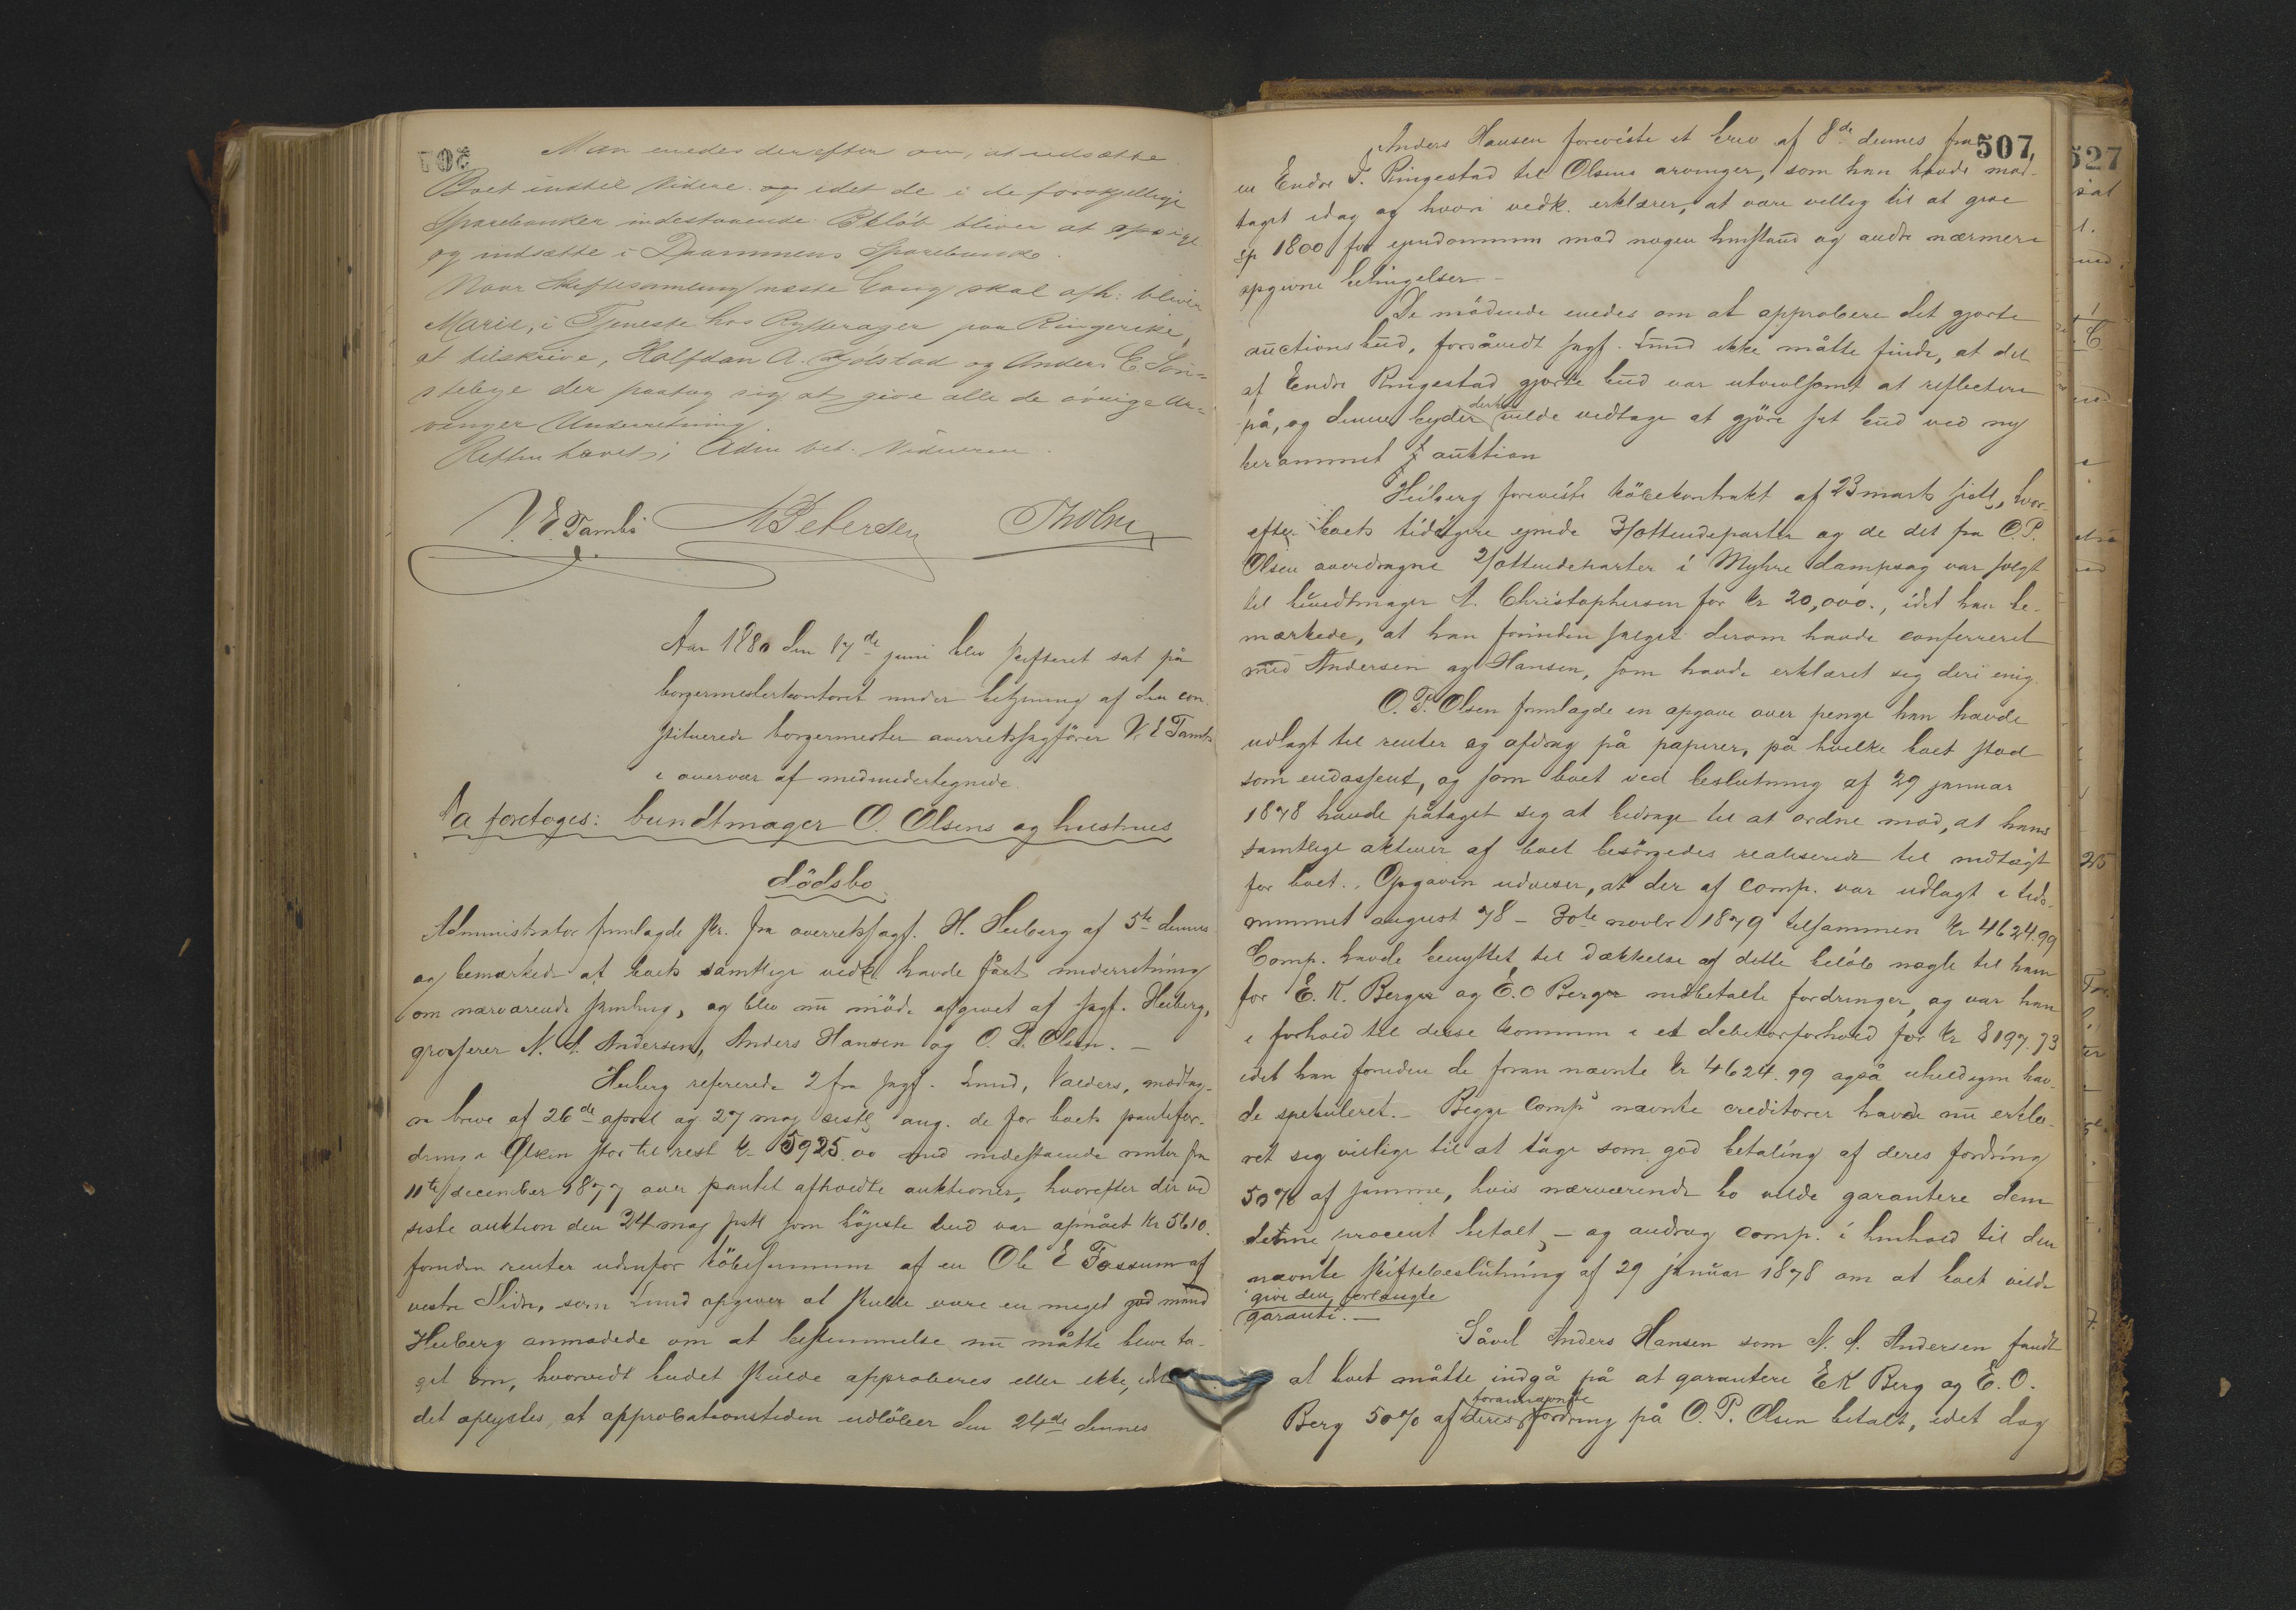 Man enedes derefter om, at udsætte
Boet indtil Videre og idet de i de forskjellige
Sparebanker indestaaende Beløb bliver at opsige
og indsætte i Drammens Sparebank.
Naar Skiftesamling næste Gang skal afh: bliver
Marie, i Tjeneste hos Rytterager paa Ringerike,
at tilskrive, Halfdan A. Gjølstad og Anders C. Søn=
stebye der paatog sig at give alle de øvrige Ar=
vinger Underretning
Retten hævet;
V. E. Tambs A Petersen Tholm
Aar 1880 den 17de juni blev skifteret sat på
borgermesterkontoret under betjening af den con-
stituerede borgermester overretssagfører V. E Tambs
i overvær af medundertegnede.
Da foretoges: bundtmager O. Olsens og hustrues
dødsbo
Administrator fremlagde skr. fra overretssagf. H. Heiberg af 5te dennes
og bemærkede at boets samtlige vedk. havde fået underretning
om nærværende samling, og blev nu møde afgivet af sagf. Heiberg,
grosserer N. A. Andersen, Anders Hansen og O. P. Olsen. —
Heiberg refererede 2 fra sagf. Lund, Valders, modtag-
ne breve af 26de april og 27 maj sistl. ang. de for boets pantefor-
dring i Ølken stor til rest kr 5925.00 med indestaaende renter fra
11te december 1877 over pantet afholdte auktioner, hvorefter der ved
siste auktion den 24 maj sistl som høieste bud var opnået Kr 5610.
foruden renter udenfor købesummen af en Ole E Fossum af
vestre Slidre, som Lund opgiver at skulde være en meget god mand
Heiberg anmodede om at bestemmelse nu måtte blive ta-
get om, hvorvidt budet skulde approberes eller ikke, idet
det oplystes, at approbationstiden udløber den 24de dennes
507
Anders Hansen foreviste et brev af 8de dennes fra
en Endre T. Ringestad til Olsens arvinger, som han havde mod-
taget idag og hvori vedk. erklærer, at være villig til at give
sp 1800 for ejendommen mod nogen henstand og andre nærmere
opgivne betingelser —
De mødende enedes om at approbere det gjorte
auctionsbud, forsåvidt sagf. Lund ikke måtte finde, at det
af Endre Ringestad gjorte bud var utvivlsomt at reflectere
på, og denne byder derhos vilde vedtage at gjøre sit bud ved ny
berammet auktion
Heiberg foreviste købekontrakt af 23 marts sistl, hvor-
efter boets tidligere ejende 3/ottendeparter og de det fra O. P.
Olsen overdragne 2/ottendeparter i Myhre dampsag var solgt
til bundtmager A. Christophersen for kr 20,000., idet han be-
mærkede, at han forinden salget derom havde conferreret
med Andersen og Hansen, som havde erklæret sig deri enig.
O. P. Olsen fremlagde en opgave over penge han havde
udlagt til renter og afdrag på papirer, på hvilke boet stod
som endossent, og som boet ved beslutning af 29 januar
1878 havde påtaget sig at bidrage til at ordne mod, at hans
samtlige aktiver af boet besørgedes realiserede til indtægt
for boet. Opgaven udviser, at der af comp. var udlagt i tids-
rummet august 78 – 30te novbr 1879 tilsammen kr 4624.99
Comp. havde benyttet til dækkelse af dette beløb nogle til ham
for E. K. Berg og E. O Berg indbetalte fordringer, og var han
i forhold til disse kommen i et debitorforhold for kr 8197.73
idet han foruden de foran nævnte kr 4624.99 også uheldigen hav-
de spekuleret. — Begge comps nævnte creditorer havde nu erklæ-
ret sig villige til at tage som god betaling af deres fordring
50% af samme, hvis nærværende bo vilde garantere dem
denne procent betalt, — og androg comp. i henhold til den
nævnte skiftebeslutning af 29 januar 1878 om at boet vilde
give den forlangte
garanti. —
Såvel Anders Hansen som N. A. Andersen fandt
at boet måtte indgå på at garantere E K Berg og E. O.
Berg 50% af deres forannævnte fordring på O. P. Olsen betalt, idet dog
527